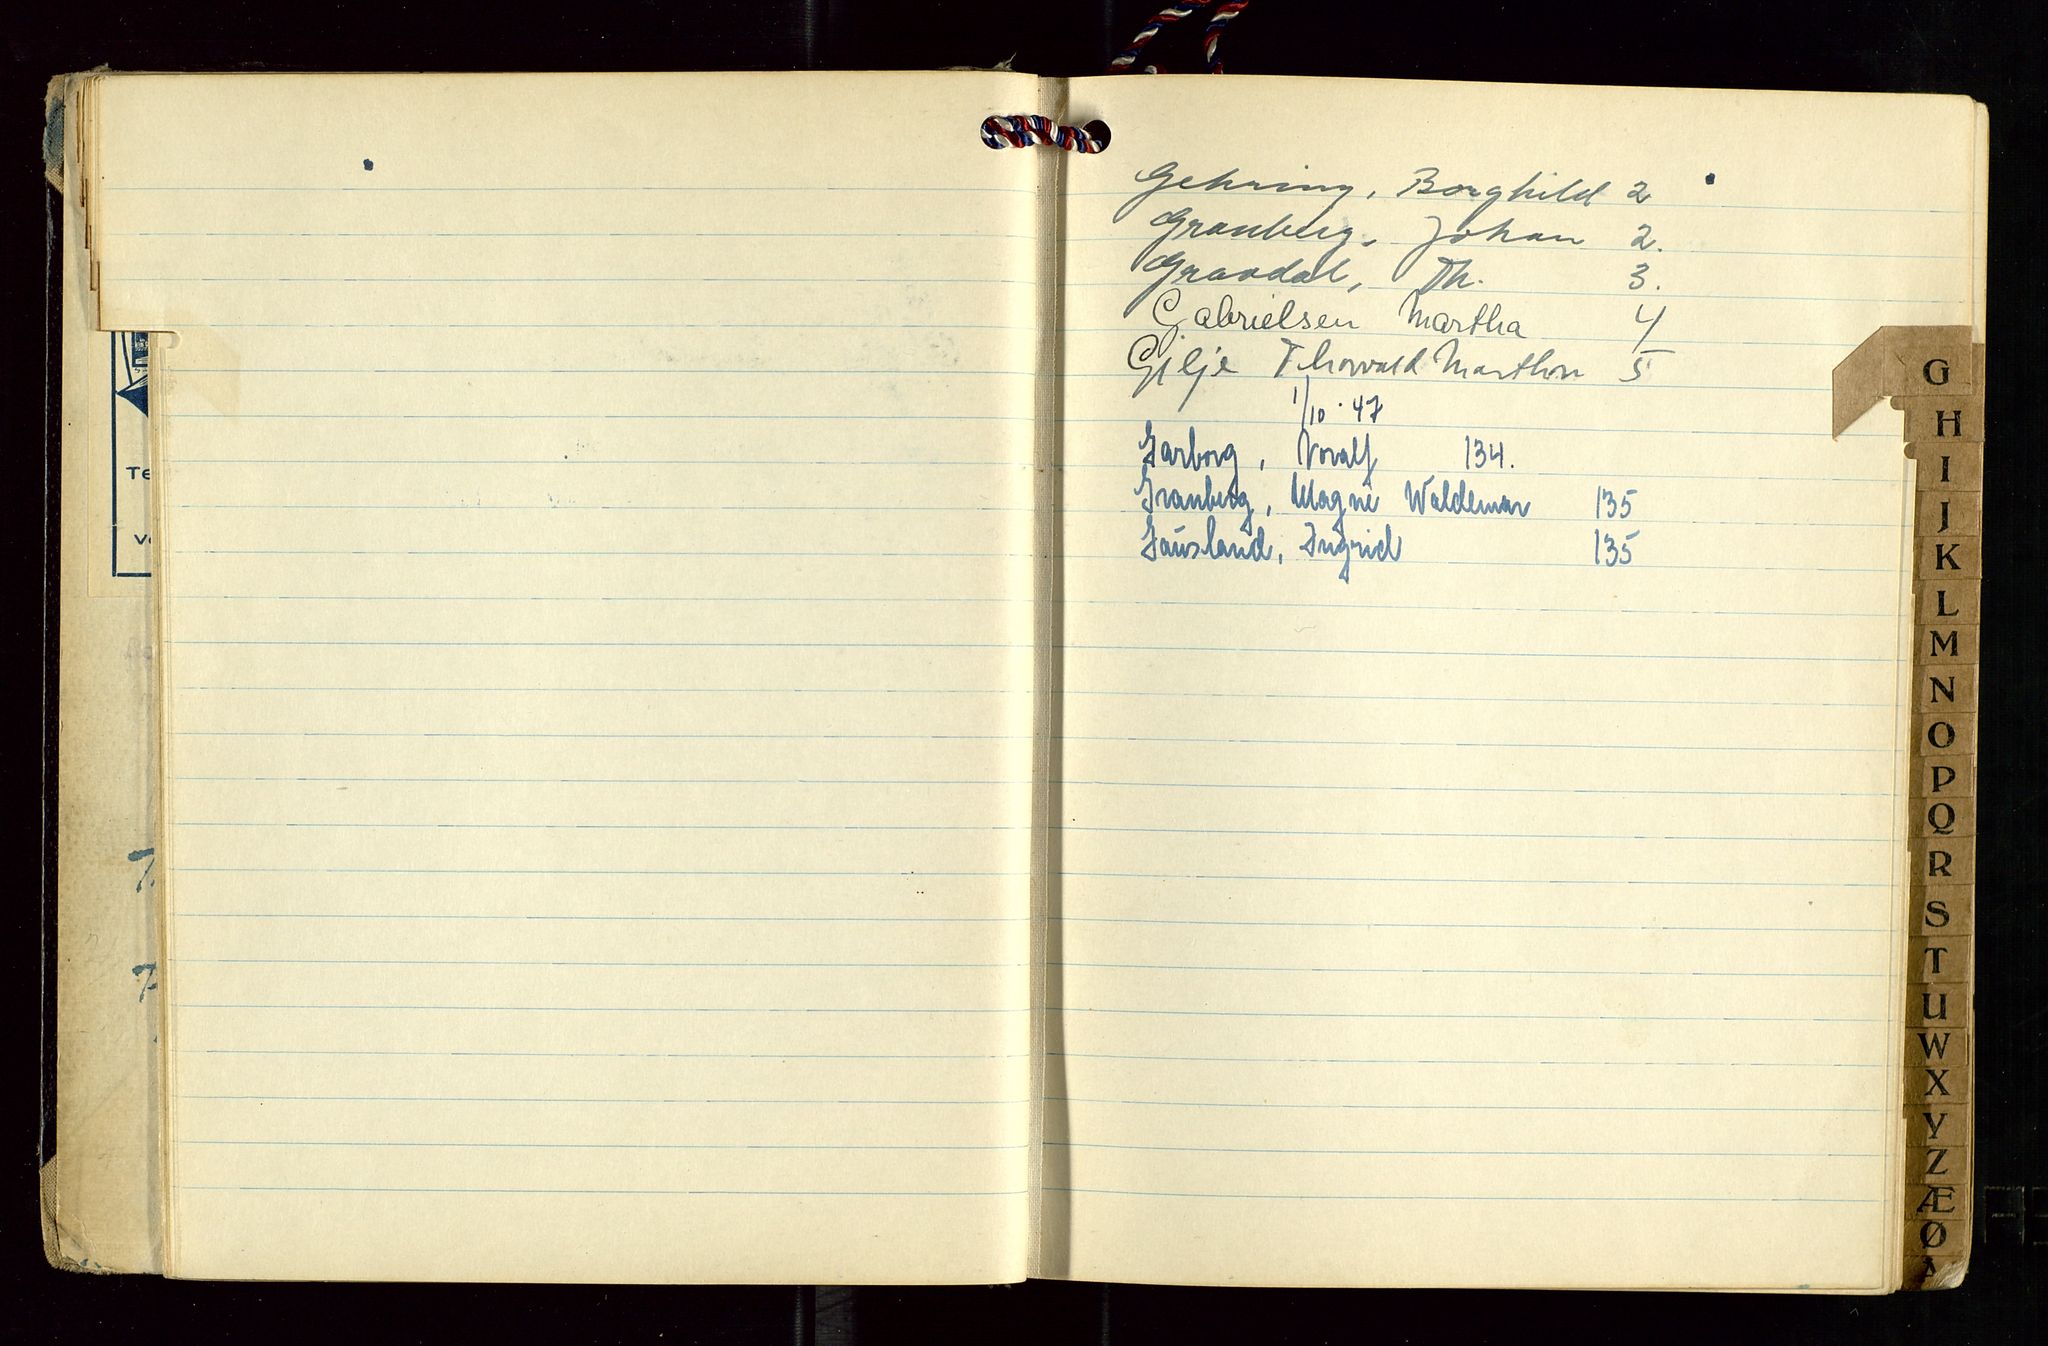 Te
Ve
7.
7.
Gehring, Borghild 2
Granberg, Johan 2.
Gravdal, Th. 3.
Gabrielsen Martha 4
Gilje Thorvald Marthon 5
1/10 · 47
Garborg, Noralf 134.
Granberg, Magne Waldemar 135
Gausland, Ingrid 135
G
H
I
J
K
L
M
N
O
P
Q
R
S
T
U
W
X
Y
Z
Æ
Ø